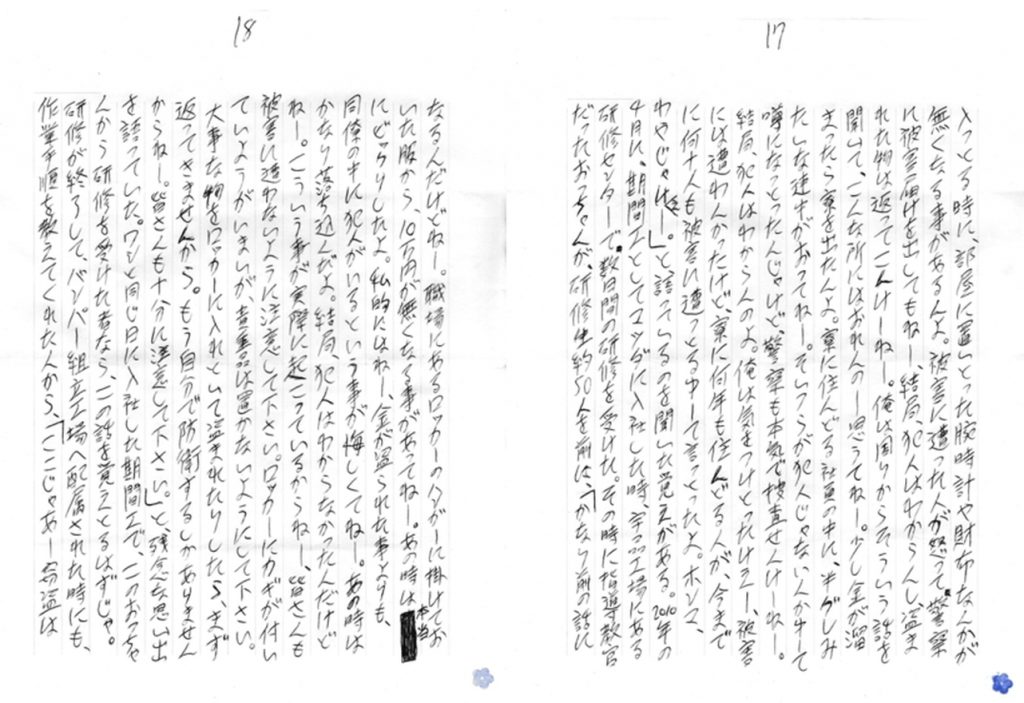 17
入っとる時に、部屋に置いとった腕時計や財布なんかが
無くなる事があるんよ。被害に遭った人が怒って、警察
に被害届けを出してもねー、結局、犯人はわからんし、盗ま
れた物は返ってこんけーねー。俺は周りからそういう話を
聞いて、こんな所にはおれんのー思うてねー。少し金が溜
まったら寮を出たんよ。寮に住んどる社員の中に、半グレみ
たいな連中がおってねー。そいつらが犯人じゃない人かゆーて
噂になっとったんじゃけど、警察も本気で捜査せんけーねー。
結局、犯人はわからんのよ。俺は気をつけとったけえー、被害
には遭わんかったけど、寮に何年も住んどる人が、今まで
に何十人も被害に遭っとるゆーて言っとったよ。ホンマ、
わやじゃけえ。」と、話っているのを聞いた覚えがある。2010年の
4月に、期間工としてマツダに入社した時、宇品工場にある
研修センターで、数日間の研修を受けた。その時に指導教官
だったおっちゃんが、研修生約50人を前は、「かなり前の話に
18
なるんだけどねー。職場にあるロッカーのハンガーに掛けてお
いた服から、10万円が無くなる事があってねー。あの時は本当
にビックリしたよ。私的にはねー、金が盗られた事よりも、
同僚の中に犯人がいるという事が悔しくてねー。あの時は
かなり落ち込んだよ。結局、犯人はわからなかったんだけど
ねー。こういう事が実際に起こっているからね、皆さんも
被害に遭わないように注意して下さい。ロッカーにカギが付い
ていようがいまいが、貴重品は置かないようにして下さい。
大事な物をロッカーに入れといて盗まれたりしたら、まず
返ってきませんから。もう自分で防衛するしかありません
からね。皆さんも十分に注意して下さい。」と、残念な思い出
を語っていた。ワシと同じ日に入社した期間工で、このおっちゃ
んから研修を受けた者なら、この話を覚えとるはずじゃ。
研修が終了して、バンパー組立工場へ配属された時にも、
作業手順を教えてくれた人から、「ここじゃあー窃盗は